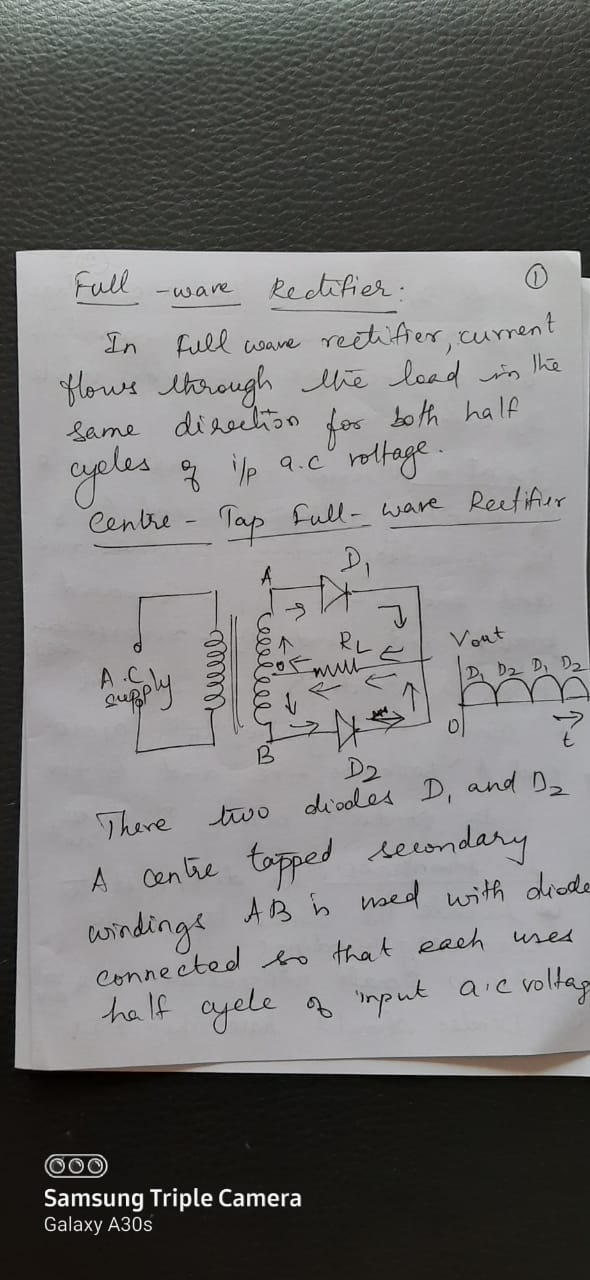 ①
Full -wave Rectifier:
In full wave rectifier, current
flows through the load in the
same direction for both half
cycles of i/p a.c voltage.
Centre - Tap Full- wave Rectifier
D1
A
RL
Vout
A.C
supply
D1 D2 D1 D2
0
t
B
D2
There two diodes D1 and D2
A centre tapped secondary
windings AB is used with diode
connected so that each uses
half cycle of input a.c voltag
Samsung Triple Camera
Galaxy A30s